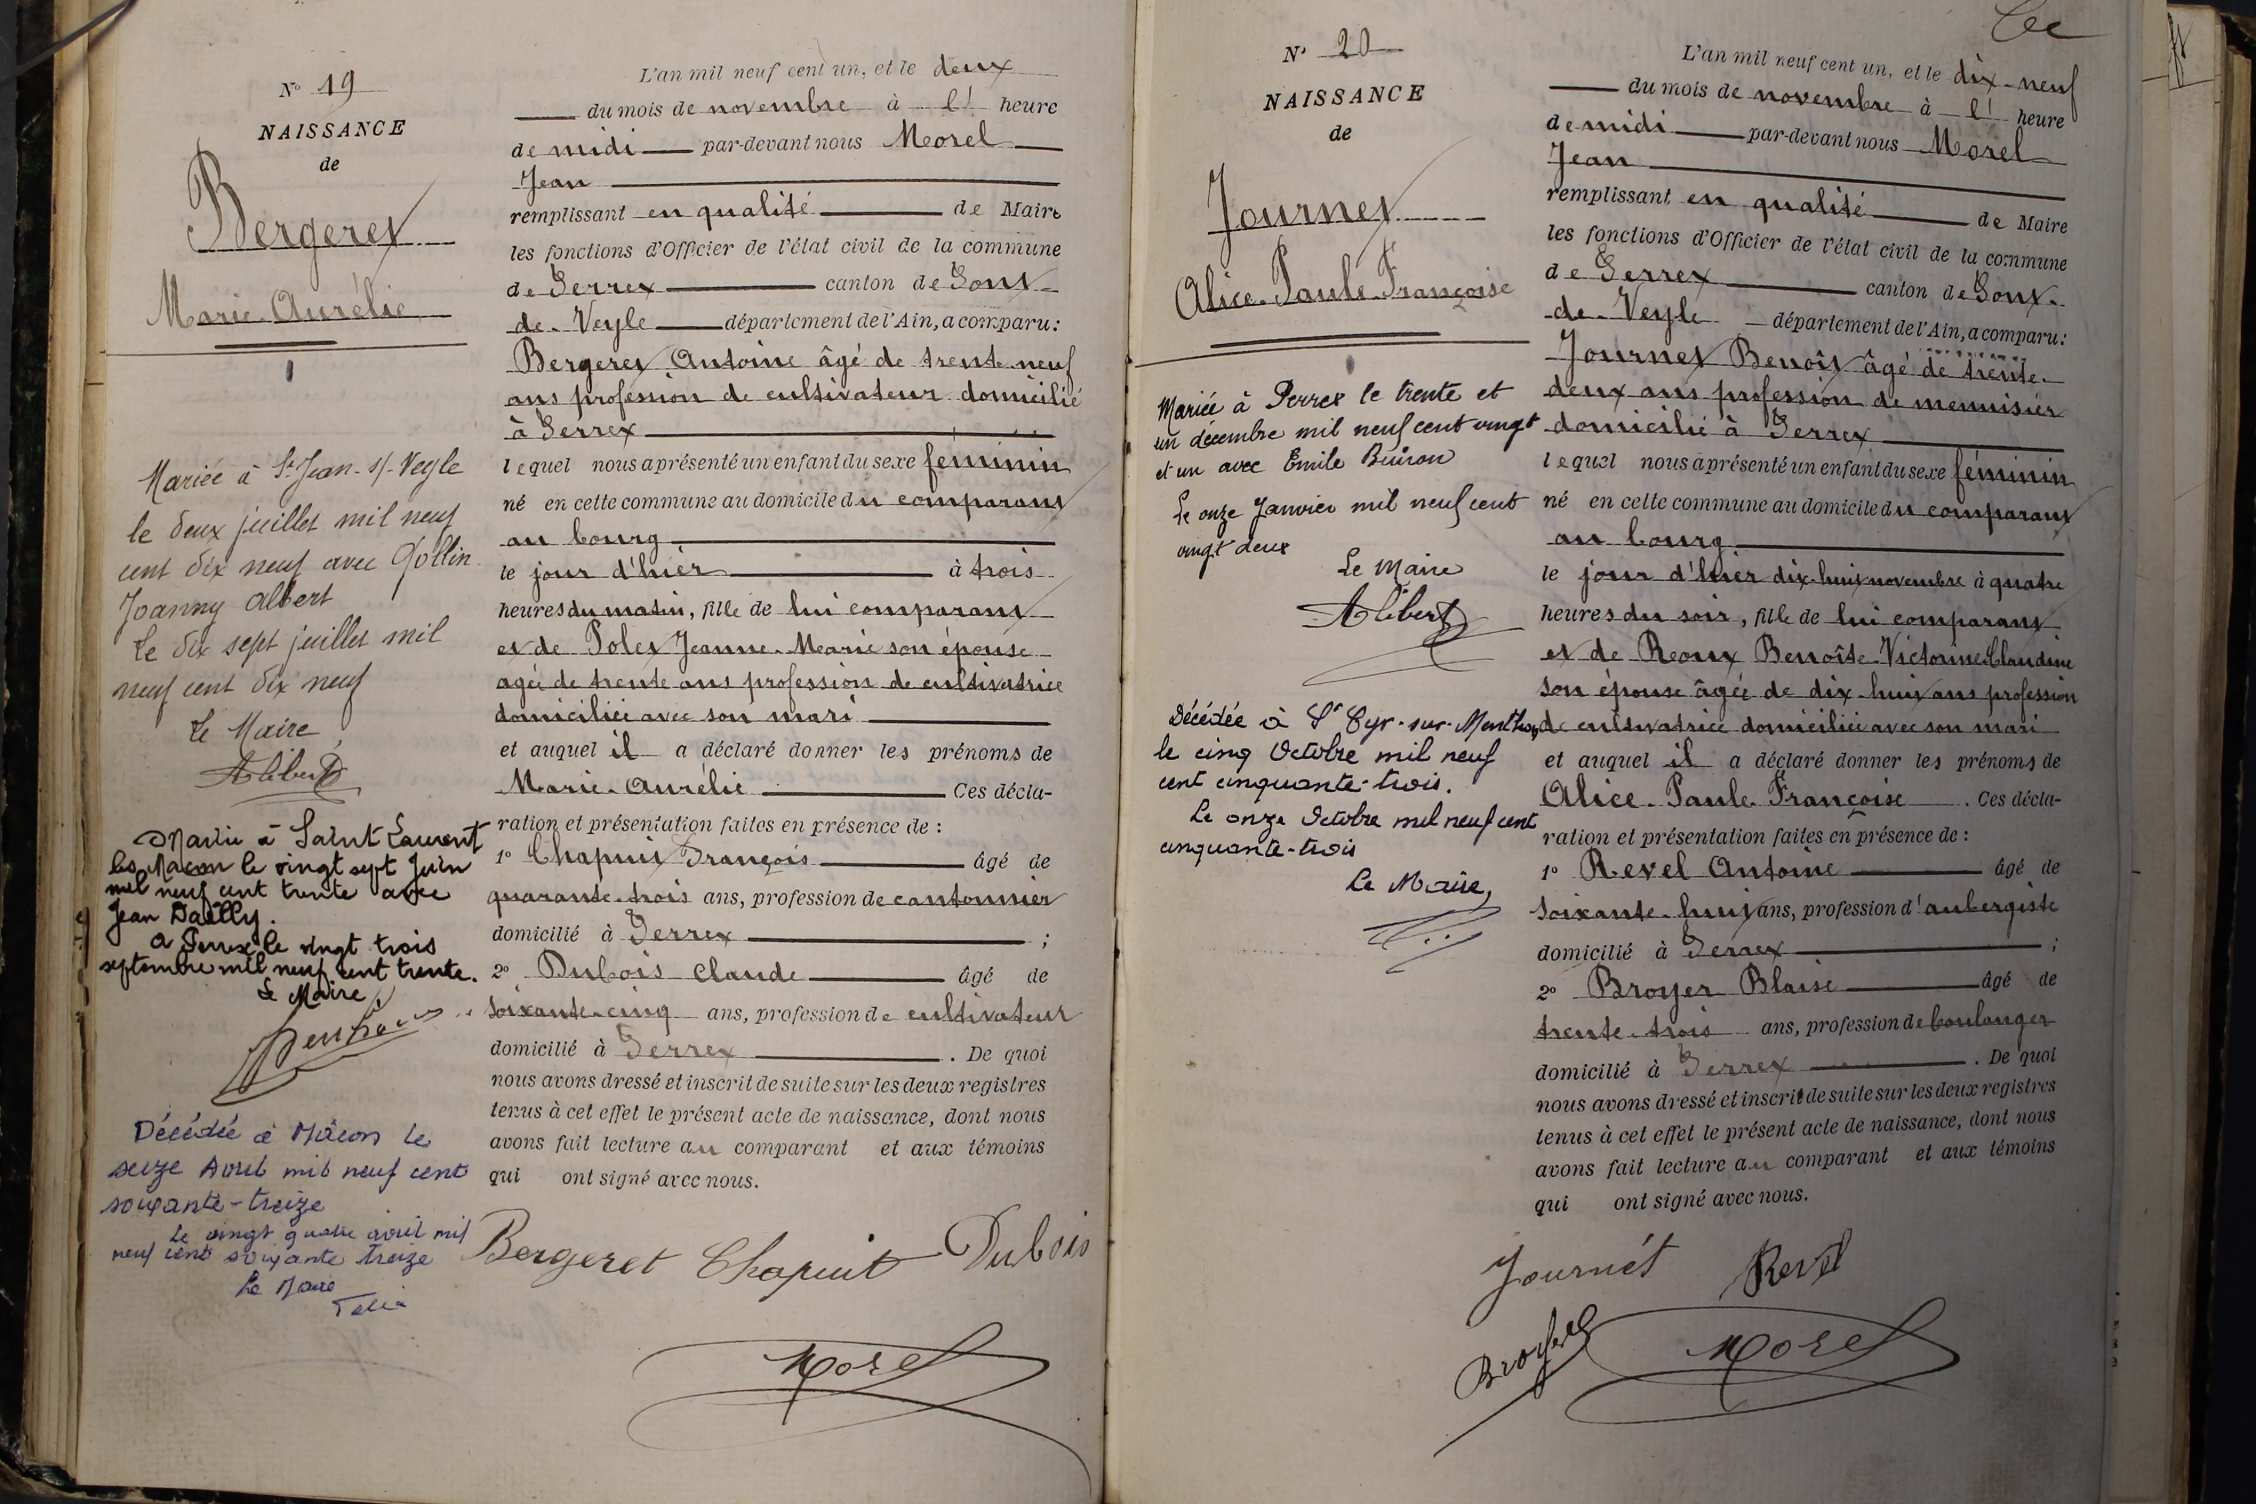 N° 19
NAISSANCE
de
Bergeret
Marie-Aurélie
Mariée à St Jean-s/-Veyle
le deux juillet mil neuf
cent dix neuf avec Gollin
Joanny Albert
Le dix sept juillet mil
neuf cent dix neuf
Le Maire,
Alibert
Mariée à Saint Laurent
les Macon le vingt sept Juin
mil neuf cent trente avec
Jean Dailly.
A Perrex le vingt trois
septembre mil neuf cent trente.
Le Maire,
Décédée à Mâcon le
seize Avril mil neuf cent
soixante-treize
Le vingt quatre avril mil
neuf cent soixante treize
Le Maire
L'an mil neuf cent un, et le deux
du mois de novembre à l' heure
de midi par-devant nous Morel
Jean
remplissant en qualité de Maire
les fonctions d'Officier de l'état civil de la commune
de Perrex canton de Pont-
de-Veyle département de l'Ain, a comparu:
Bergeret Antoine âgé de trente-neuf
ans profession de cultivateur domicilié
à Perrex
lequel nous a présenté un enfant du sexe féminin
né en cette commune au domicile du comparant
au bourg
le jour d'hier à trois
heures du matin, fille de lui comparant
et de Polet Jeanne-Marie son épouse
agée de trente ans profession de cultivatrice
domiciliée avec son mari
et auquel il a déclaré donner les prénoms de
Marie-Aurélie Ces décla-
ration et présentation faites en présence de :
1° Chapuit François âgé de
quarante-trois ans, profession de cantonnier
domicilié à Perrex ;
2° Dubois Claude âgé de
soixante-cinq ans, profession de cultivateur
domicilié à Perrex . De quoi
nous avons dressé et inscrit de suite sur les deux registres
tenus à cet effet le présent acte de naissance, dont nous
avons fait lecture au comparant et aux témoins
qui ont signé avec nous.
Bergeret Chapuit Dubois
Morel
N° 20
NAISSANCE
de
Journet
Alice-Paule-Françoise
Mariée à Perrex le trente et
un décembre mil neuf cent vingt
et un avec Emile Buiron
Le onze Janvier mil neuf cent
vingt deux
Le Maire
Alibert
Décédée à St Cyr-sur-Menthon
le cinq Octobre mil neuf
cent cinquante-trois.
Le onze Octobre mil neuf cent
cinquante-trois
Le Maire,
L'an mil neuf cent un, et le dix-neuf
du mois de novembre à l' heure
de midi par-devant nous Morel
Jean
remplissant en qualité de Maire
les fonctions d'Officier de l'état civil de la commune
de Perrex canton de Pont-
de-Veyle département de l'Ain, a comparu:
Journet Benoît âgé de trente-
deux ans profession de menuisier
domicilié à Perrex
lequel nous a présenté un enfant du sexe féminin
né en cette commune au domicile du comparant
au bourg
le jour d'hier dix-huit novembre à quatre
heures du soir, fille de lui comparant
et de Roux Benoîte-Victorine-Claudine
son épouse âgée de dix-huit ans profession
de cultivatrice domiciliée avec son mari
et auquel il a déclaré donner les prénoms de
Alice-Paule-Françoise . Ces décla-
ration et présentation faites en présence de :
1° Revel Antoine âgé de
soixante-huit ans, profession d'aubergiste
domicilié à Perrex ;
2° Broyer Blaise âgé de
trente-trois ans, profession de boulanger
domicilié à Perrex . De quoi
nous avons dressé et inscrit de suite sur les deux registres
tenus à cet effet le présent acte de naissance, dont nous
avons fait lecture au comparant et aux témoins
qui ont signé avec nous.
Journet Revel
Broyer Morel